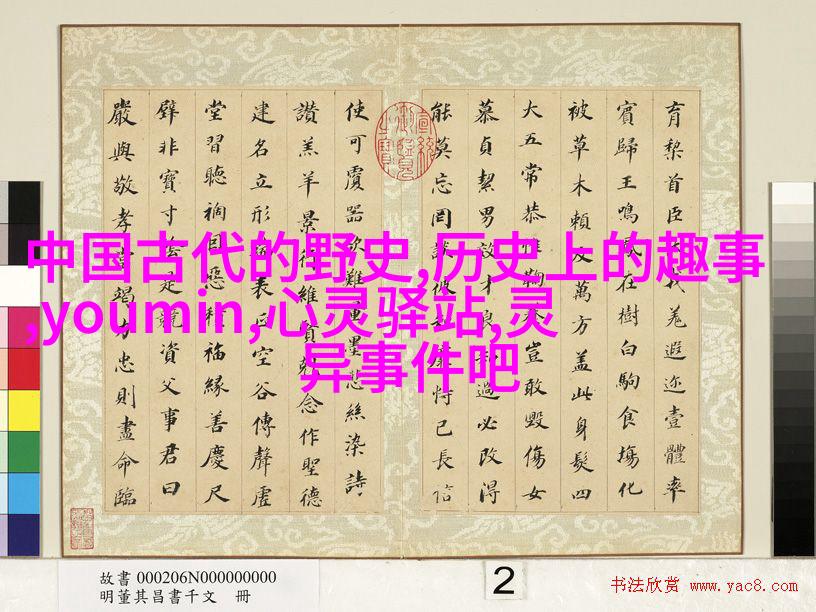 中国古代的野史,历史上的趣事
,youmin,心灵驿站,灵
异事件吧
育黎首臣戎羌遐迩壹體率
賓歸王鳴鳳在樹白駒食場化
被草木賴及萬方蓋此身髮四
大五常恭惟鞠養豈敢毀傷女
慕貞絜男效才良知過必改得
能莫忘罔談彼恃己長信
使可覆器欲難量墨悲絲染詩
讚羔羊景行維賢克念作聖德
建名立形端表正空谷傳聲虛
堂習聽禍因惡積福緣善慶尺
璧非寶寸陰是競資父事君曰
嚴與敬孝當竭力忠則盡命臨
故書 000206N000000000
明董其昌書千文 冊
2
书法欣赏 www.yac8.com